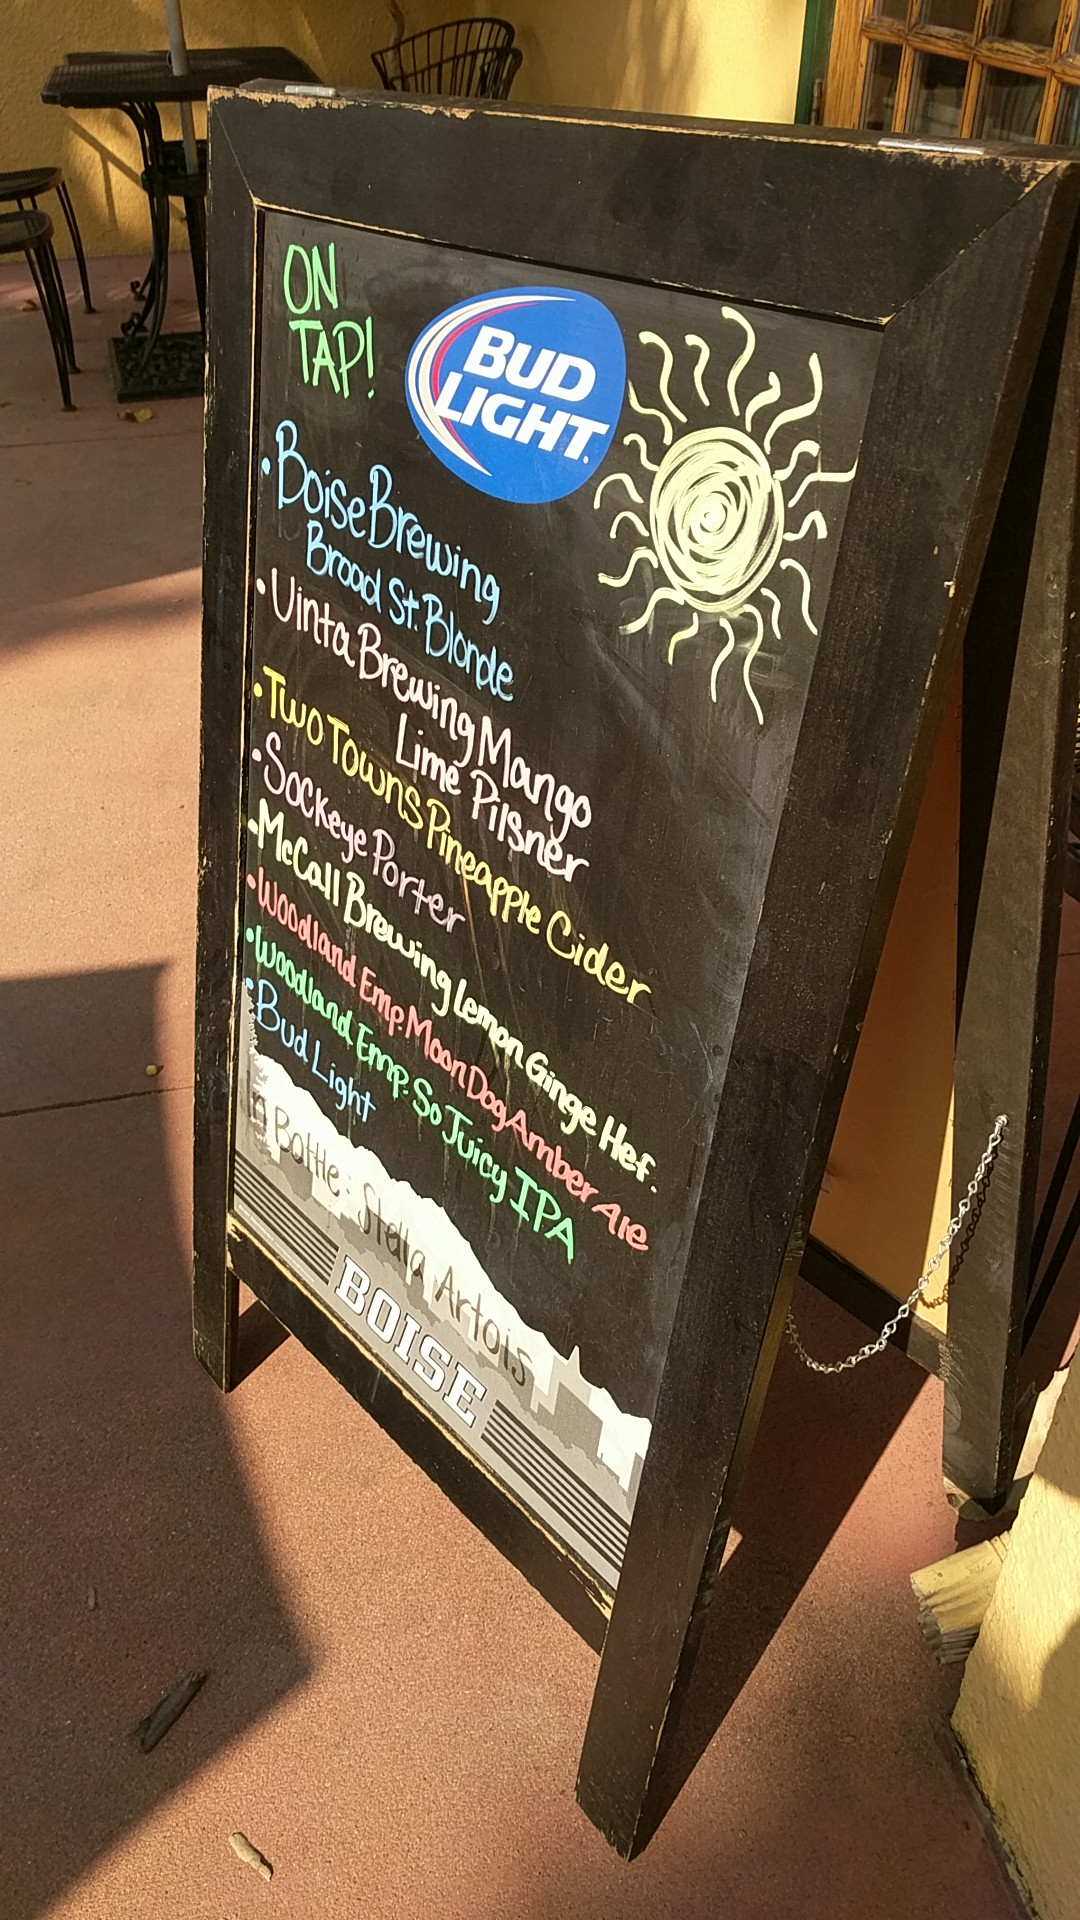 ON
TAP!
BUD
LIGHT.
• Boise Brewing
Broad St. Blonde
• Uinta Brewing Mango
Lime Pilsner
• Two Towns Pineapple Cider
• Sockeye Porter
• McCall Brewing Lemon Ginge Hef.
• Woodland Emp. Moon Dog Amber Ale
• Woodland Emp. So Juicy IPA
• Bud Light
In Bottle: Stella Artois
BOISE